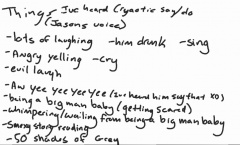 Things Ive heard Cryaotic say/do
(Jasons voice)
-lots of laughing -him drunk -sing
-Angry yelling -cry
-evil laugh
-Aw yee yee yee yee (Ive heard him say that XD)
-being a big man baby (getting scared)
-whimpering/wailing from being a big man baby
-Smexy story reading
-50 shades of Gray